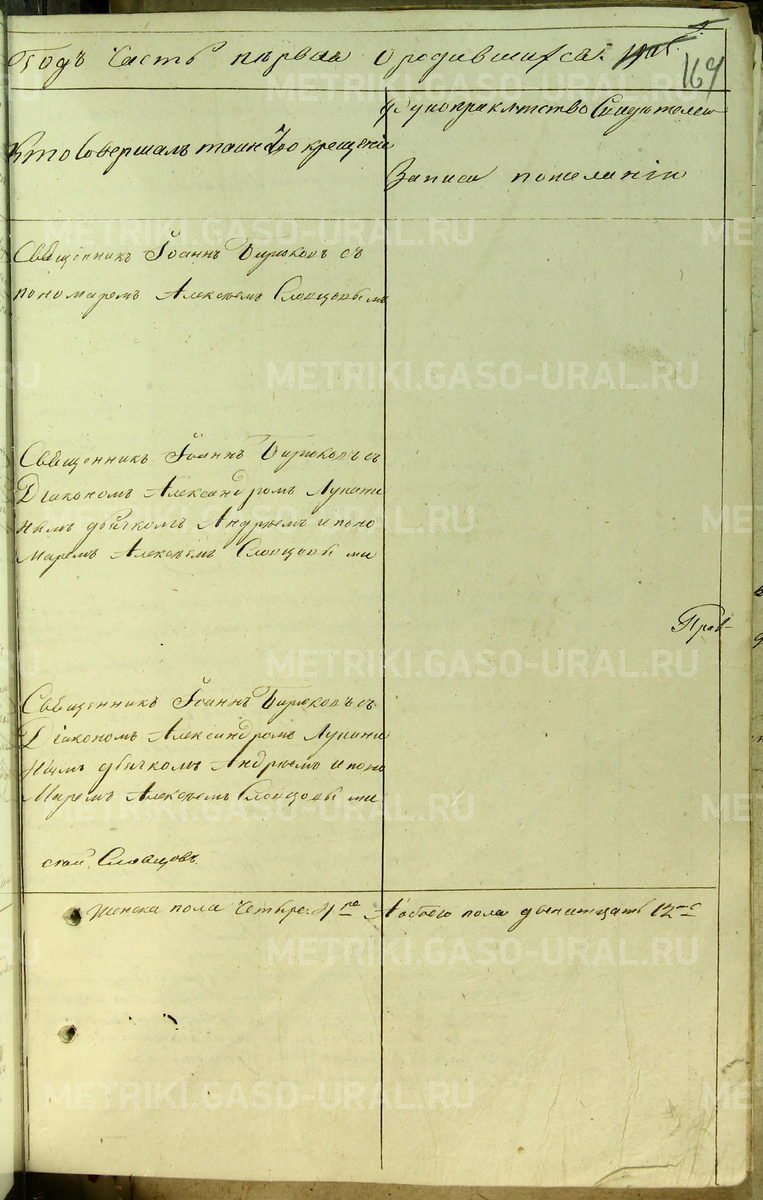 Годъ Часть первая о родившихся.
167
Кто Совершалъ таинство крещенiе
Рукоприкладство Свидѣтелей
Записи по желанiю
Священникъ Iоаннъ Бирюковъ съ
пономаремъ Алексѣемъ Словцовымъ
Священникъ Iоаннъ Бирюковъ съ
Дiакономъ Александромъ Лупати
нымъ дьячкомъ Андрѣемъ и поно
Маремъ Алексѣемъ Словцовыми
Прав-
Священникъ Iоаннъ Бирюковъ съ
Дiакономъ Александромъ
нымъ дьячкомъ Андрѣемъ и поно
Маремъ Алексѣемъ Словцовыми
Словцовъ.
Женска пола Четыре. 4ре А обоего пола двенатцать 12ть
METRIKI.GASO-URAL.RU